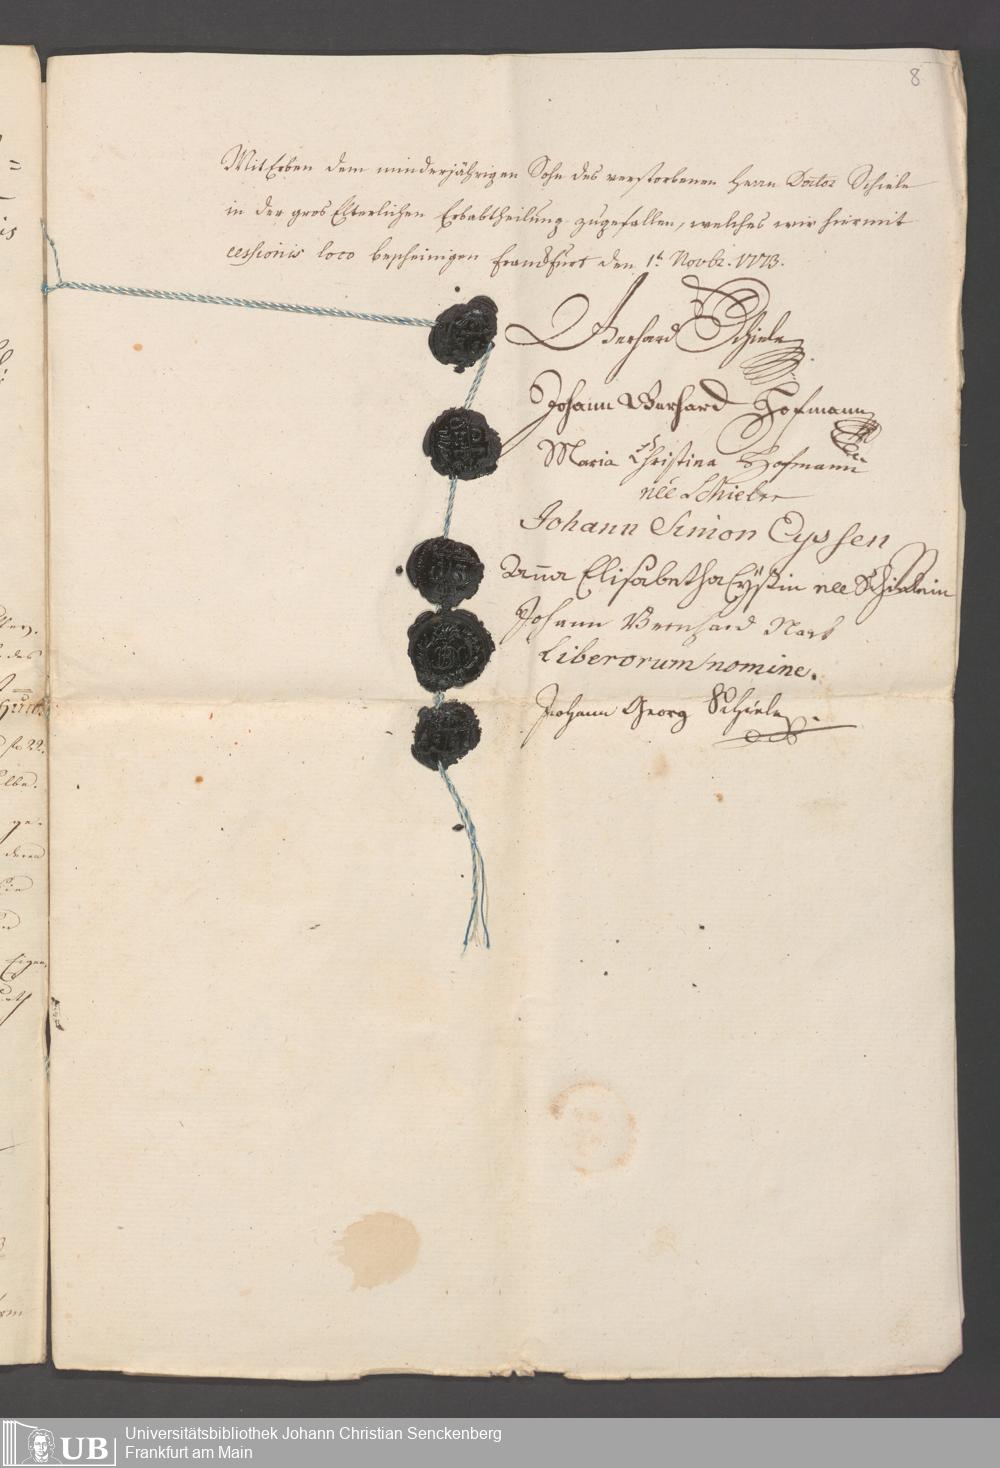 8
MitErben dem minderjährigen Sohn des verstorbenen Herrn Doctor Schiele
in der gros Elterlichen Erbabtheilung zugefallen, welches wir hiermit
cessionis loco bescheinigen Franckfurt den 1t. Novbr. 1773.
Gerhard Schiele
Johann Gerhard Hofmann
Maria Christina Hofmann
née Schiele
Johann Simon Eyssen
Anna Elisabetha Eyßin nee Schielein
Johann Bernhard
Liberorum nomine.
Johann Georg Schiele
UB
Universitätsbibliothek Johann Christian Senckenberg
Frankfurt am Main